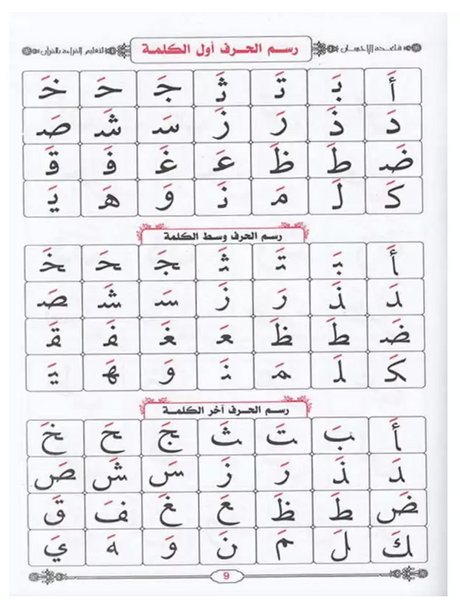 قاعدة الإحسان رسم الحرف أول الكلمة لتعليم القراءة بالقرآن
أَ بَـ تَـ ثَـ جَـ حَـ خَـ
دَ ذَ رَ زَ سَـ شَـ صَـ
ضَـ طَـ ظَـ عَـ غَـ فَـ قَـ
كَـ لَـ مَـ نَـ وَ هَـ يَـ
رسم الحرف وسط الكلمة
ـأَ ـبَـ ـتَـ ـثَـ ـجَـ ـحَـ ـخَـ
ـدَ ـذَ ـرَ ـزَ ـسَـ ـشَـ ـصَـ
ـضَـ ـطَـ ـظَـ ـعَـ ـغَـ ـفَـ ـقَـ
ـكَـ ـلَـ ـمَـ ـنَـ ـوَ ـهَـ ـيَـ
رسم الحرف آخر الكلمة
ـأَ ـبَ ـتَ ـثَ ـجَ ـحَ ـخَ
ـدَ ـذَ ـرَ ـزَ ـسَ ـشَ ـصَ
ـضَ ـطَ ـظَ ـعَ ـغَ ـفَ ـقَ
ـكَ ـلَ ـمَ ـنَ ـوَ ـهَ ـيَ
9